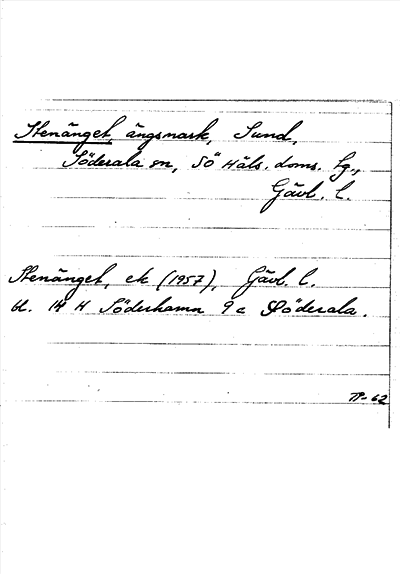 Stenänget, ängsmark, Sund,
Söderala sn, Sö Häls. doms. tg.,
Gävl. l.
Stenänget, ek (1957), Gävl. l.
bl. 14 H Söderhamn 9 c Söderala.
TP-62